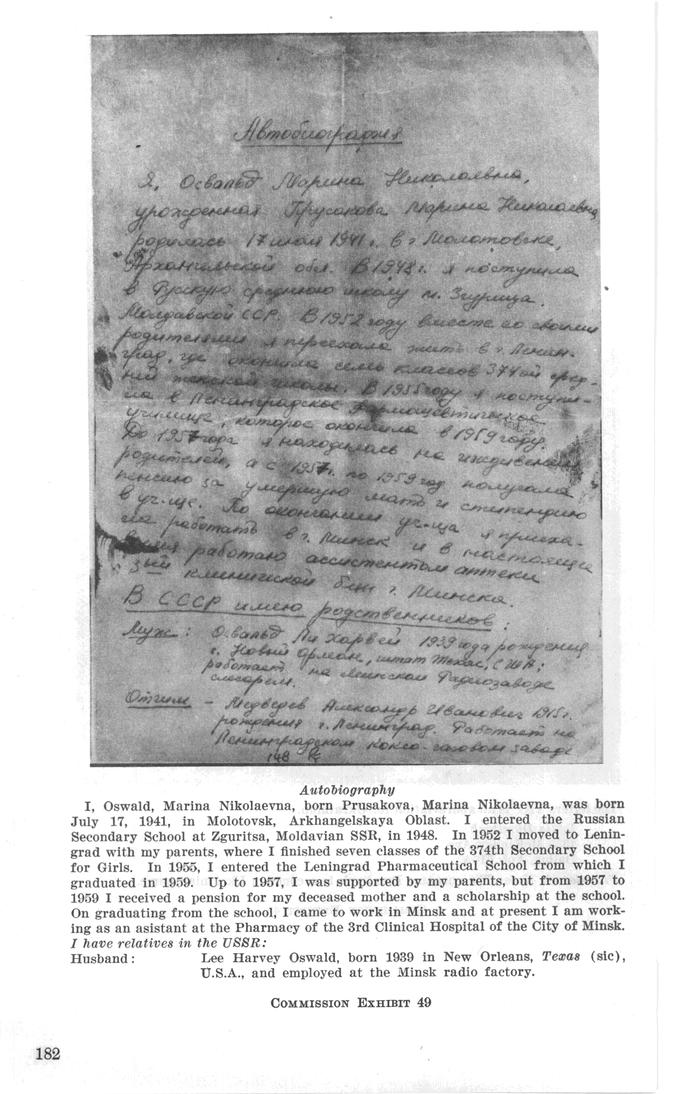 Автобиография
Я, Освальд Марина Николаевна,
урожденная Прусакова Марина Николаевна,
родилась 17 июля 1941 г. в г. Молотовске,
Архангельской обл. В 1948 г. я поступила
в Русскую среднюю школу м. Згурица,
Молдавской ССР. В 1952 году вместе со своими
родителями я переехала жить в г. Ленин-
град, где окончила семь классов 374ой сред-
ней женской школы. В 1955 году я поступи-
ла в Ленинградское Фармацевтическое
училище, которое окончила в 1959 году.
До 1957 года я находилась на иждивении
родителей, а с 1957 г. по 1959 год получала
пенсию за умершую мать и стипендию
в уч-ще. По окончании уч-ща я приеха-
ла работать в г. Минск и в настоящее
время работаю ассистентом аптеки
3ьей клинической б-цы г. Минска.
В СССР имею родственников:
Муж: Освальд Ли Харвей 1939 года рождения
г. Новый Орлеан, штат Техас, США;
работает на Минском Радиозаводе
слесарем.
Отчим – Медведев Александр Иванович 1915 г.
рождения г. Ленинград. Работает на
Ленинградском коксо-газовом заводе
148
Autobiography
I, Oswald, Marina Nikolaevna, born Prusakova, Marina Nikolaevna, was born
July 17, 1941, in Molotovsk, Arkhangelskaya Oblast. I entered the Russian
Secondary School at Zguritsa, Moldavian SSR, in 1948. In 1952 I moved to Lenin-
grad with my parents, where I finished seven classes of the 374th Secondary School
for Girls. In 1955, I entered the Leningrad Pharmaceutical School from which I
graduated in 1959. Up to 1957, I was supported by my parents, but from 1957 to
1959 I received a pension for my deceased mother and a scholarship at the school.
On graduating from the school, I came to work in Minsk and at present I am work-
ing as an asistant at the Pharmacy of the 3rd Clinical Hospital of the City of Minsk.
I have relatives in the USSR:
Husband: Lee Harvey Oswald, born 1939 in New Orleans, Texas (sic),
U.S.A., and employed at the Minsk radio factory.
COMMISSION EXHIBIT 49
182